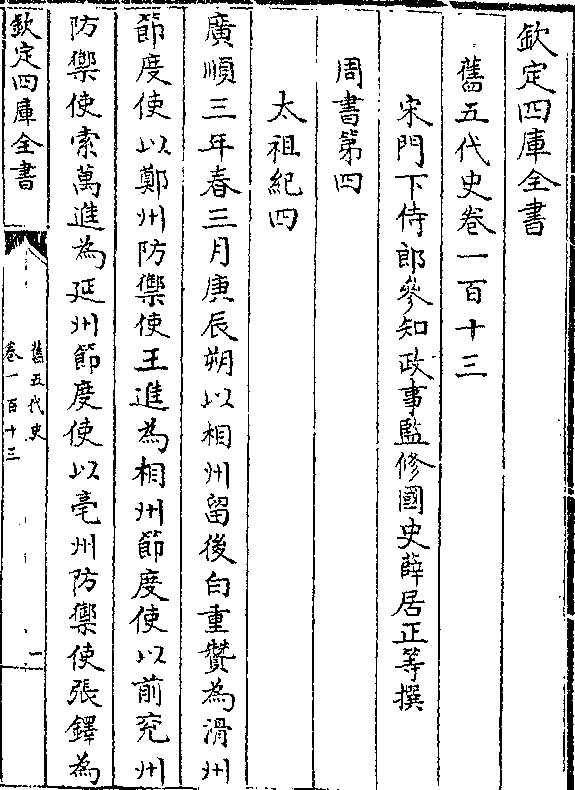 欽定四庫全書
舊五代史卷一百十三
宋門下侍郎參知政事監修國史薛居正等撰
周書第四
太祖紀四
廣順三年春三月庚辰朔以相州留後白重贊為滑州
節度使以鄭州防禦使王進為相州節度使以前兖州
防禦使索萬進為延州節度使以亳州防禦使張鐸為
欽定四庫全書
舊五代史
卷一百十三
一